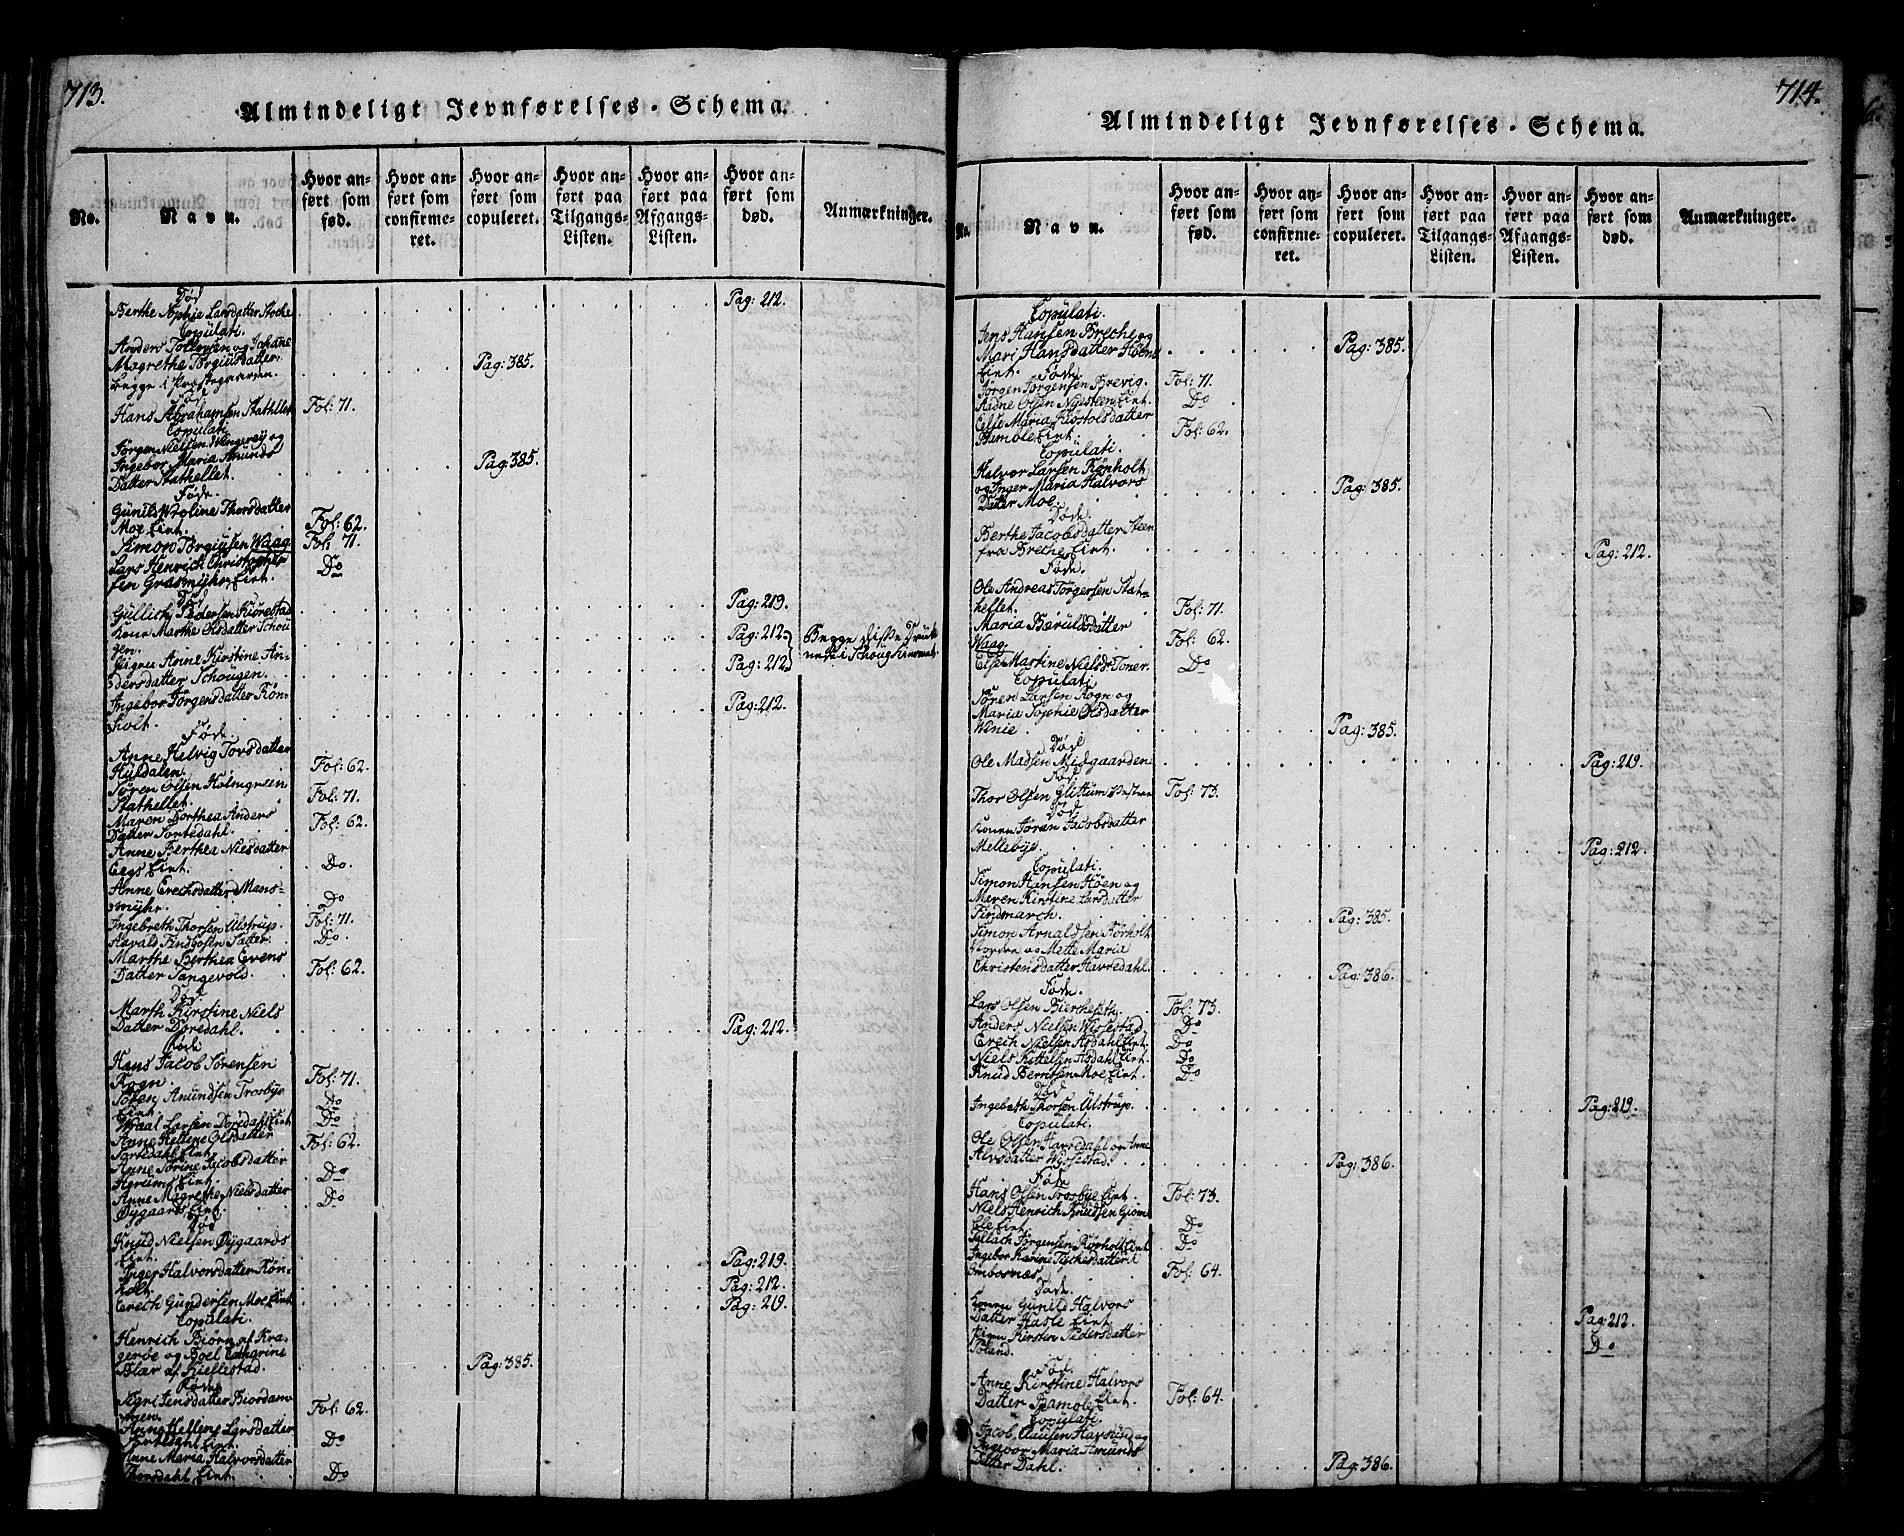 713.
Almindeligt Jevnførelses-Schema.
No.
Navn.
Hvor anført som fød.
Hvor anført som confirmeret.
Hvor anført som copuleret.
Hvor anført paa Tilgangs-Listen.
Hvor anført paa Afgangs-Listen.
Hvor anført som død.
Anmærkninger.
Død
Berthe Sophie Larsdatter Stoche Pag: 212.
Copulati.
Anders Tollefsen og Johane
Magrethe Torgiusdatter
begge i Præstegaarden. Pag: 385.
Fød
Hans Abrahamsen Stathellet Fol: 71.
Copulati
Jørgen Nielsen Wingerey og
Ingebor Maria Amunds
Datter Stathellet. Pag: 385.
Føde.
Gunild Wroline Thorsdatter
Moe Eint. Fol: 62.
Simon Torgiusen Waag Fol: 71.
Lars Henrich Christopher
sen Grasmyhr, Eint. Do
Død
Gullich Pedersen Kiørestad Pag: 219.
Kone Marthe Olsdatter Schou
gen. Pag: 212.
Pigen Anne Kirstine An-
dersdatter Schougen. Pag: 212.
Begge disse
Ingebor Jørgensdatter Røn-
holt. Pag: 212.
Føde.
Anne Helvig Torsdatter
Huldalen. Fol: 62.
Søren Olsen Holmgreen
Stathellet. Fol: 71.
Maren Dorthea Anders
Datter Sortedahl. Fol: 62.
Anne Berthea Nielsdatter
Eegs Eint. Do.
Anne Erechsdatter Mans-
myhr. Do
Ingebreth Thorsen Alstrup. Fol: 71.
Havald Findbosen Satter. Do.
Marthe Berthea Evens
Datter Tangevold. Fol: 62.
Død.
Marth Kirstine Niels
Datter Doredahl. Pag: 212.
Føde
Hans Jacob Sørensen
Rogn. Fol: 71.
Søren Amundsen Trosbye
Eint. Do
Wraal Larsen Dørdahl Eint Do
Anne Hellene Olsdatter
Sortedahl Eint. Fol: 62.
Anne Sørine Jacobsdatter
Agrums Eint. Do
Anne Magrethe Nielsdatter
Øygaards Eint. Do
Død
Knud Nielsen Øygaards
Eint. Pag: 219.
Inger Halvorsdatter Røn-
holt. Pag: 212.
Erech Gundersen Moe Eint Pag: 219.
Copulati.
Henrich Biørn af Kra-
gerøe og Boel Catharine
Blær af Kiellestad. Pag: 385.
Føde
Sigri Jensdatter Biordam
men. Fol: 62.
Anne Hellene Larsdatter
Sortedahl Eint. Do
Anne Maria Halvorsdatter
Thorsdahl Eint. Do
714.
Almindeligt Jevnførelses-Schema.
No.
Navn.
Hvor anført som fød.
Hvor anført som confirmeret.
Hvor anført som copuleret.
Hvor anført paa Tilgangs-Listen.
Hvor anført paa Afgangs-Listen.
Hvor anført som død.
Anmærkninger.
Copulati.
Jens Hansen Breche og
Mari Hansdatter Høens
Eint. Pag: 385.
Føde.
Jørgen Jørgensen Brevig. Fol: 71.
Aadne Olsen Nysteen Eint. Do
Else Maria Kiøstolsdatter
Bamble Eint. Fol: 62.
Copulati.
Halvor Larsen Rønholt
og Inger Maria Halvors
Datter Moe. Pag: 385.
Døde.
Berthe Jacobsdatter Steen
fra Breche Eint. Pag: 212.
Føde.
Ole Andreas Jørgensen Stat-
hellet. Fol: 71.
Maria Bærulsdatter
Waag. Fol: 62.
Else Martine Nielsdr Toner. Do
Copulati
Søren Larsen Rogn og
Maria Sophie Olsdatter
Winie. Pag: 385.
Død
Ole Madsen Midgaarden Pag: 219.
Fød.
Thor Olsen Glittum Vestre Fol: 73.
Død
Konen Jøran Jacobsdatter
Mellebye. Pag: 212.
Copulati.
Simon Hansen Høen og
Meren Kirstine Larsdatter
Findmarch. Pag: 385.
Simon Arnaldsen Rørholt
Nordre og Mette Maria
Christensdatter Havredahl. Pag: 386.
Føde.
Lars Olsen Biercheseth. Fol: 73.
Anders Nielsen Wissestad. Do
Erech Nielsen Asdahl Eint. Do
Niels Kittelsen Asdahl Eint. Do
Knud Berntsen Moe Eint. Do
Død
Ingebreth Thorsen Alstrup. Pag: 219.
Copulati.
Ole Olsen Havredahl og Anne
Alvsdatter Wissestad. Pag: 386.
Føde
Hans Olsen Trosbye Eint. Fol: 73.
Niels Henrich Knudsen Giøm-
Ele Eint. Do
Tallach Jørgensen Rørholt Eint Do
Ingebor Karine
Ombosnæs. Fol: 64.
Døde.
Konen Gunild Halvors
Datter Hasle Eint. Pag: 212.
Pigen Kirsten Pedersdatter
Poland. Do
Fød.
Anne Kirstine Halvors
Datter Bamble Eint. Fol: 64.
Copulati.
Jacob Clausen Havsund og
Ingebor Maria Amunds
Datter Dahl. Pag: 386.